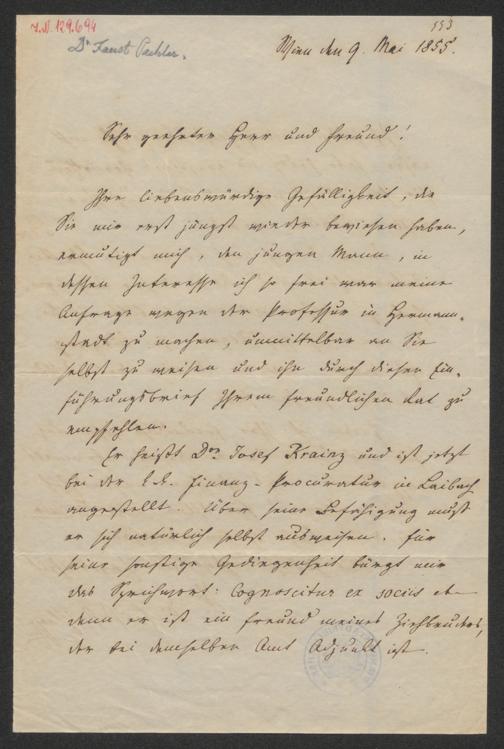 153
I.N. 129.694
Dr Faust Pachler.
Wien den 9. Mai 1855.
Sehr geehrter Herr und Freund!
Ihre liebenswürdige Gefälligkeit, die
Sie mir erst jüngst wieder bewiesen haben,
ermutigt mich, den jungen Mann, in
dessen Interesse ich so frei war meine
Anfrage wegen der Professur in Hermann-
stadt zu machen, unmittelbar an Sie
selbst zu weisen und ihn durch diesen Ein-
führungsbrief Ihrem freundlichen Rat zu
empfehlen.
Er heißt Dor Josef Krainz und ist jetzt
bei der k.k. Finanz-Procuratur in Laibach
angestellt. Über seine Befähigung muß
er sich natürlich selbst ausweisen. Für
seine sonstige Gediegenheit bürgt mir
das Sprichwort: Cognoscitur ex sociis
denn er ist ein Freund meines Ziehbruders,
der bei demselben Amt Adjunkt ist.